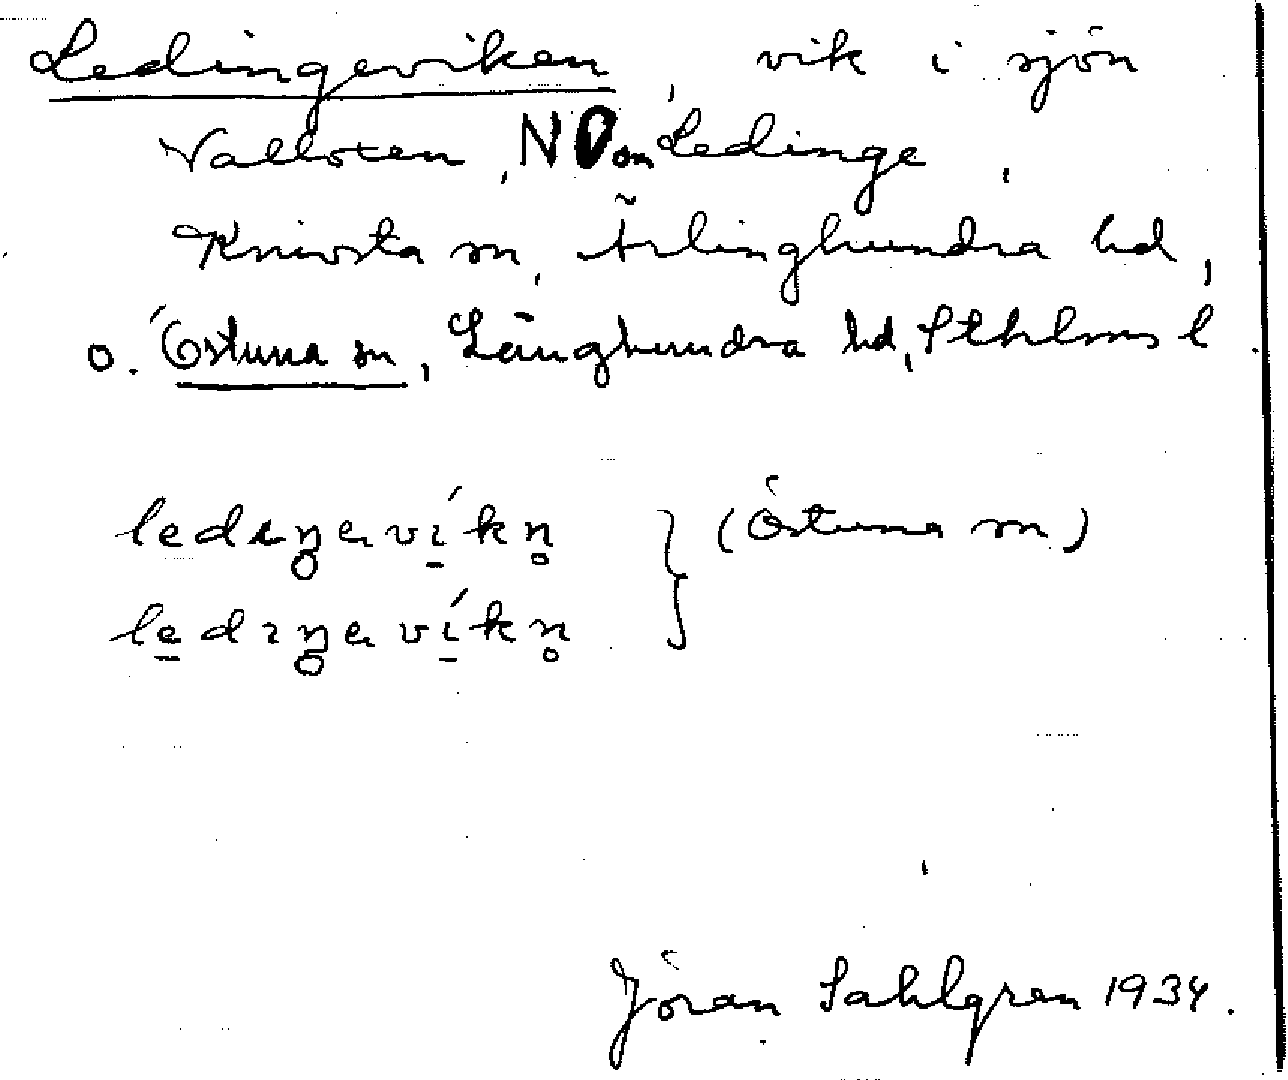 Ledingeviken, vik i sjön
Valloxen, NO om Ledinge,
Knivsta sn, Ärlinghundra hd,
o. Östuna sn, Långhundra hd, Sthlms l.
ledıŋ̥aví̱kn̥ } (Östuna sn)
le̱dıŋ̥aví̱kn̥
Jöran Sahlgren 1934.